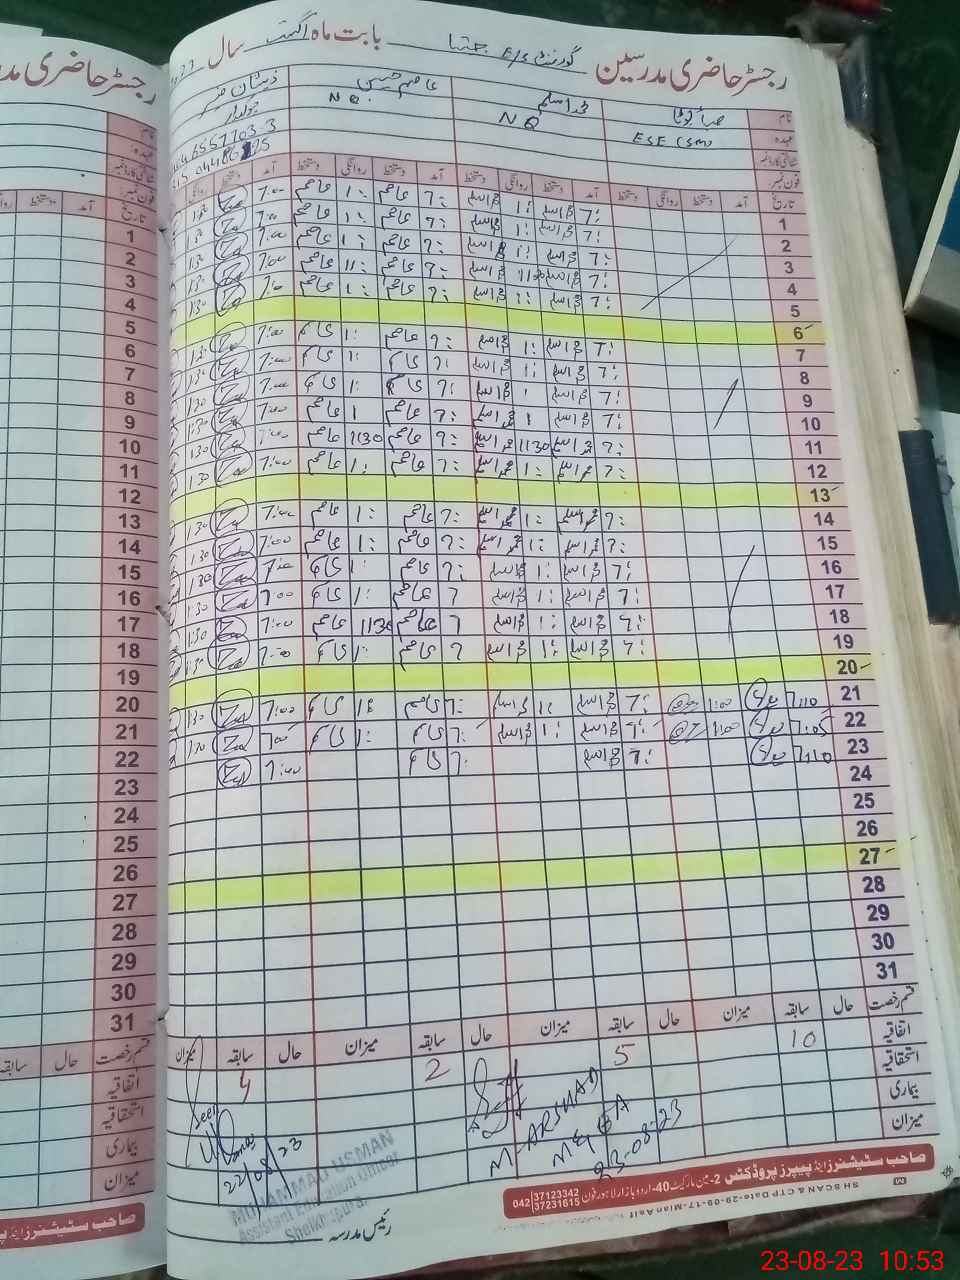 رجسٹر حاضری مدرسین گورنمنٹ E/S بابت ماہ اگست سال
نام صبا محمد اسلم عاصم حسین ذیشان
عہدہ ESE (SM) NQ NQ. چوکیدار
شناختی کارڈ نمبر
فون نمبر
تاریخ آمد دستخط روانگی دستخط آمد دستخط روانگی دستخط آمد دستخط روانگی دستخط آمد دستخط روانگی
1 7: محمد اسلم 1: محمد اسلم 7: عاصم 1: عاصم 7:00 130
2 7: محمد اسلم 1: محمد اسلم 7: عاصم 1: عاصم 7:00 130
3 7: محمد اسلم 1: محمد اسلم 7: عاصم 1: عاصم 7:00 130
4 7: محمد اسلم 1130 محمد اسلم 7: عاصم 11: عاصم 7:00 130
5 7: محمد اسلم 1: محمد اسلم 7: عاصم 1: عاصم 7:00 130
6
7 7: محمد اسلم 1: محمد اسلم 7: عاصم 1: عاصم 7:00 130
8 7: محمد اسلم 1: محمد اسلم 7: عاصم 1: عاصم 7:00 130
9 7: محمد اسلم 1 محمد اسلم 7: عاصم 1: عاصم 7:00 130
10 7: محمد اسلم 1 محمد اسلم 7: عاصم 1 عاصم 7:00 130
11 7: محمد اسلم 1130 محمد اسلم 7: عاصم 1130 عاصم 7:00 130
12 7: محمد اسلم 1: محمد اسلم 7: عاصم 1: عاصم 7:00 130
13
14 7: محمد اسلم 1: محمد اسلم 7: عاصم 1: عاصم 7:00 130
15 7: محمد اسلم 1: محمد اسلم 7: عاصم 1: عاصم 7:00 130
16 7: محمد اسلم 1: محمد اسلم 7: عاصم 1: عاصم 7:00 130
17 7: محمد اسلم 1: محمد اسلم 7 عاصم 1: عاصم 7:00 1:30
18 7: محمد اسلم 1: محمد اسلم 7 عاصم 1130 عاصم 7:00 1:30
19 7: محمد اسلم 1: محمد اسلم 7 عاصم 1: عاصم 7:00 1:30
20
21 7:10 1:00 7: محمد اسلم 1: محمد اسلم 7: عاصم 1: عاصم 7:00 130
22 7:05 1:00 7: محمد اسلم 1: محمد اسلم 7: عاصم 1: عاصم 7:00 130
23 7:10 7: محمد اسلم 7: عاصم 7:00
24
25
26
27
28
29
30
31
قسم رخصت حال سابقہ میزان حال سابقہ میزان حال سابقہ میزان حال سابقہ میزان
اتفاقیہ 10 5 2 4
استحقاقیہ
بیماری
میزان
Seen
22/08/23
M ARSHAD
MEA
23-08-23
MUHAMMAD USMAN
Assistant Education Officer
Sheikhupura
رئیس مدرسہ
صاحب سٹیشنرز اینڈ پیپرز پروڈکٹس 2-مین مارکیٹ 40-اردو بازار لاہور فون 042 37123342 37231615
SH SCAN & CTP Date-29-09-17-Mian Asif
رجسٹر حاضری مد
نام
عہدہ
شناختی کارڈ نمبر
فون نمبر:
تاریخ آمد دستخط
1
2
3
4
5
6
7
8
9
10
11
12
13
14
15
16
17
18
19
20
21
22
23
24
25
26
27
28
29
30
31
قسم رخصت حال سابقہ
اتفاقیہ
استحقاقیہ
بیماری
میزان
صاحب سٹیشنرز اینڈ
23-08-23 10:53